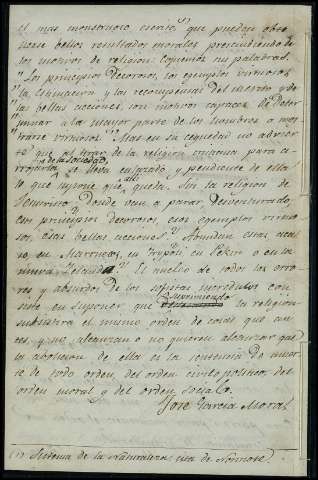 el mas monstruoso escrito, que puedan obte
nerse bellos resultados morales prescindiendo de
los motivos de religion. Copiemos sus palabras.
"Los principios decorosos, los egemplos virtuosos,
"la estimacion y las recompensas del merito y de
"las bellas acciones, son motivos capaces de deter
"minar a la mayor parte de los hombres a mos
"trarse virtuosos." Mas en su ceguedad no advier
te que al tirar de la religion cristiana para ar
rojarla de la Sociedad, se lleva enlazado y pendiente de ella
lo que supone que alli queda. Sin la religion de
Jesucristo ¿Donde van a parar, desventurado,
esos principios decorosos, esos egemplos virtuo
sos, esas bellas acciones? ¿Abundan estas aca
so en Marruecos, en Tripoli, en Pekin o en la
nueva Zelanda? El nucleo de todos los erro
res y absurdos de los sofistas incredulos con
siste en suponer que suprimiendo la religion
subsistira el mismo orden de cosas que an
tes, y no alcanzan o no quieren alcanzar que
la abolicion de ella es la sentencia de muer
te de todo orden, del orden civil y politico, del
orden moral y del orden social.
José Garcia Moral
(1) Sistema de la Naturaleza, cita de Nonnote.